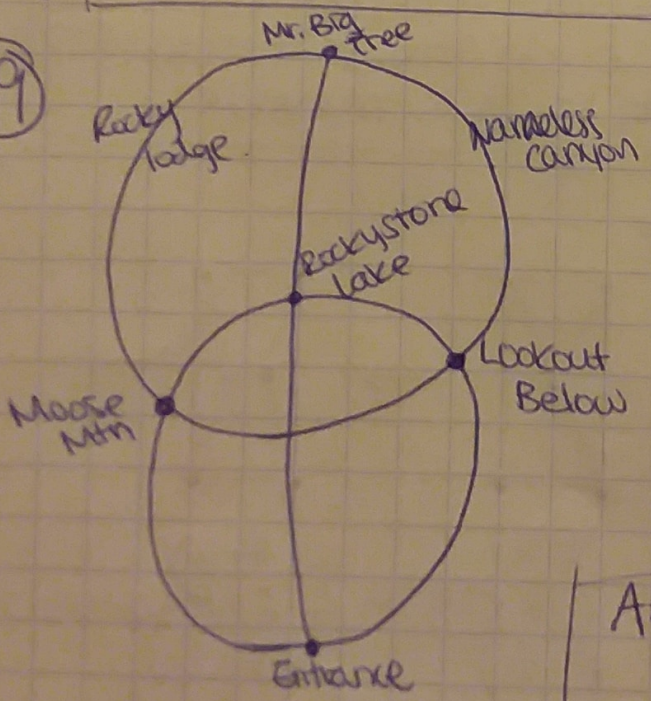 9
Mr. Big
tree
Rocky
lodge
Nameless
canyon
Rockystone
Lake
Lookout
Below
Moose
Mtn
Entrance
A